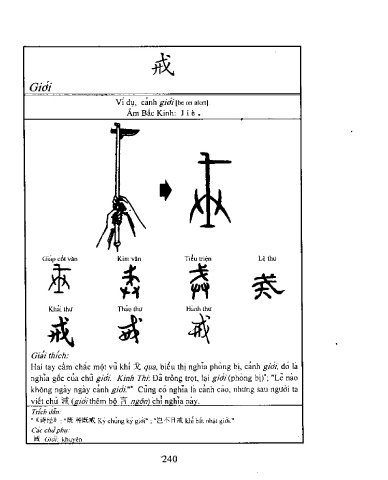 戒
Giới
Ví dụ, cảnh giới [be on alert]
Âm Bắc Kinh: Jiè.
Giáp cốt văn Kim văn Tiểu triện Lệ thư
Khải thư Thảo thư Hành thư
戒
Giải thích:
Hai tay cầm chắc một vũ khí 戈 qua, biểu thị nghĩa phòng bị, cảnh giới, đó là
nghĩa gốc của chữ giới. Kinh Thi: Đã trồng trọt, lại giới (phòng bị)"; "Lẽ nào
không ngày ngày cảnh giới." Cũng có nghĩa là cảnh cáo, nhưng sau người ta
viết chữ 誡 (giới thêm bộ 言 ngôn) chỉ nghĩa này.
Trích dẫn
"《诗经》: "既种既戒 Ký chủng ký giới"; "岂不日戒 khỉ bất nhật giới."
Các chữ phụ:
诫 Giới, khuyên
240